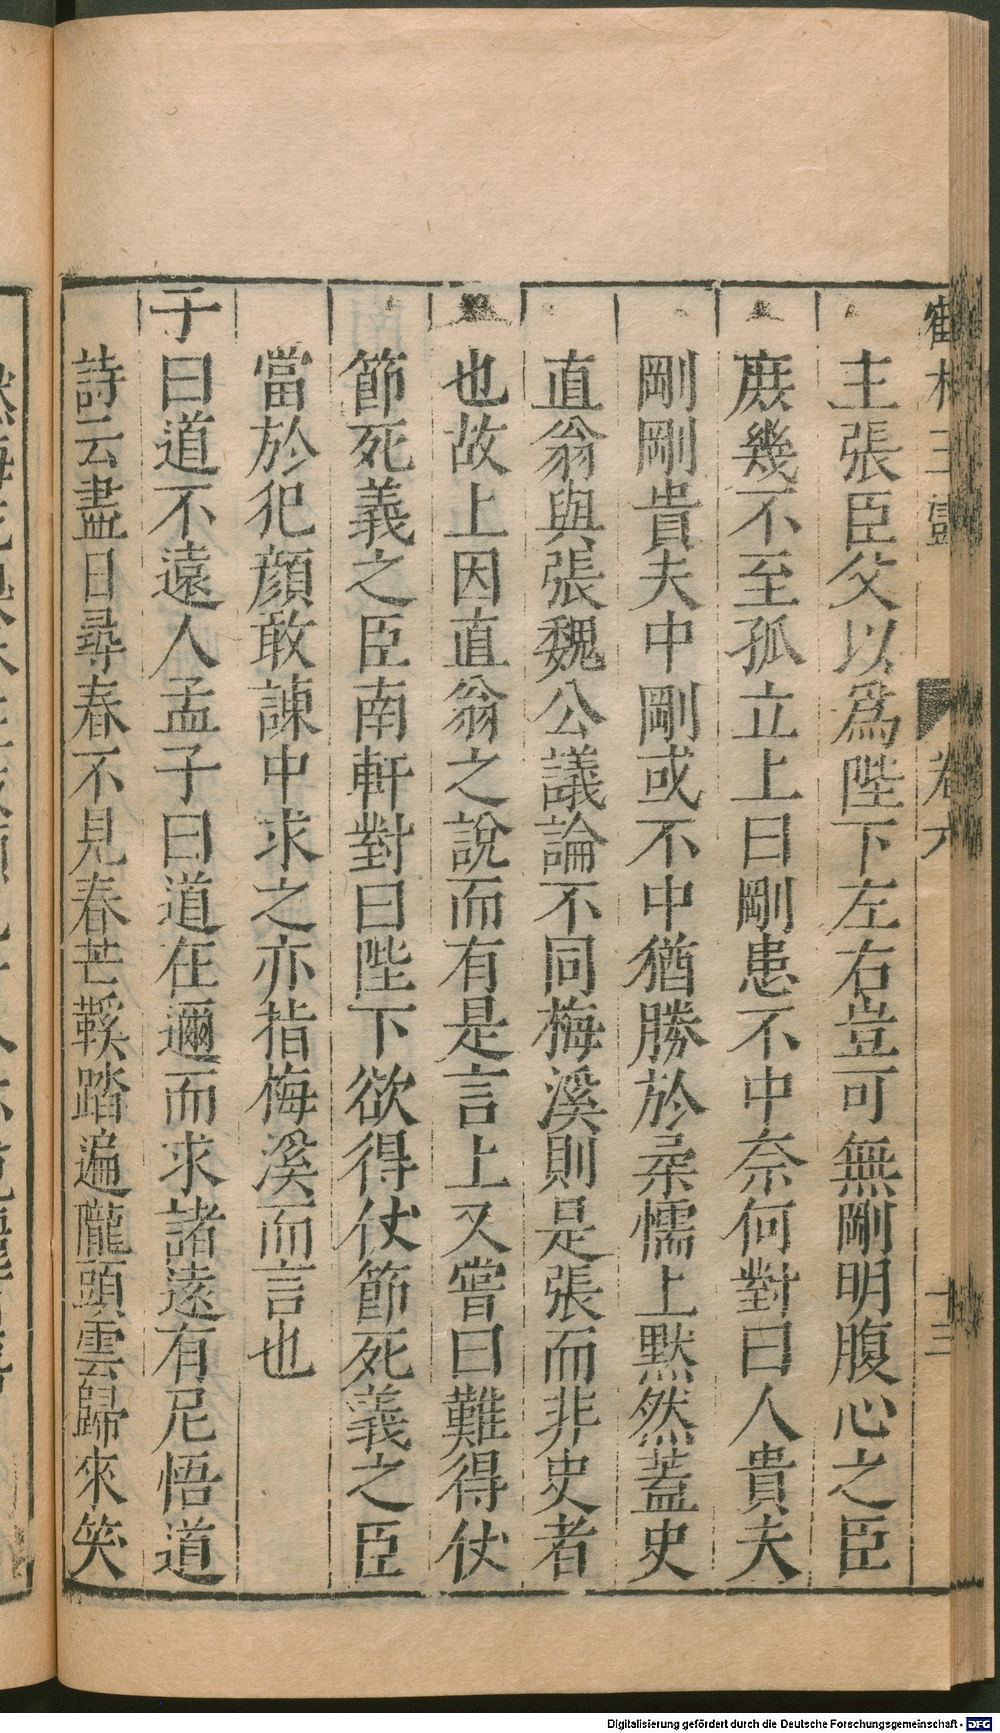 鶴林玉露 卷六 十三
主張臣父以爲陛下左右豈可無剛明腹心之臣
庶幾不至孤立上曰剛患不中奈何對曰人貴夫
剛剛貴夫中剛或不中猶勝於柔懦上默然蓋史
直翁與張魏公議論不同梅溪則是張而非史者
也故上因直翁之說而有是言上又嘗曰難得仗
節死義之臣南軒對曰陛下欲得仗節死義之臣
當於犯顔敢諫中求之亦指梅溪而言也
子曰道不遠人孟子曰道在邇而求諸遠有尼悟道
詩云盡日尋春不見春芒鞵踏遍隴頭雲歸來笑
Digitalisierung gefördert durch die Deutsche Forschungsgemeinschaft - DFG